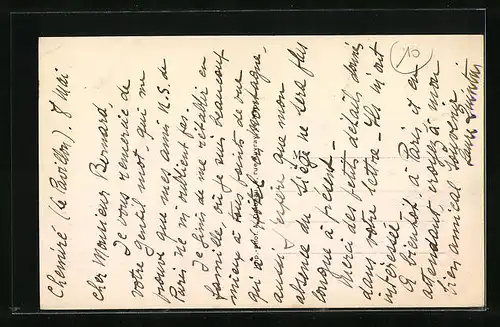 Chemiré (Le Pavillon). 8 Mai
cher Monsieur Bernard,
Je vous remercie de
votre gentil mot, qui me
prouve que mes amis U.S. de
Paris ne m'oublient pas.
Je finis de me rétablir en
famille où je suis beaucoup
mieux à tous points de vue
qu'à Montagne,
aussi j'espère que mon
absence du siège ne sera plus
longue à présent -
Merci des petits détails donnés
dans votre lettre - Ils m'ont
intéressée
A bientôt à Paris et en
attendant croyez à mon
bien amical souvenir
10